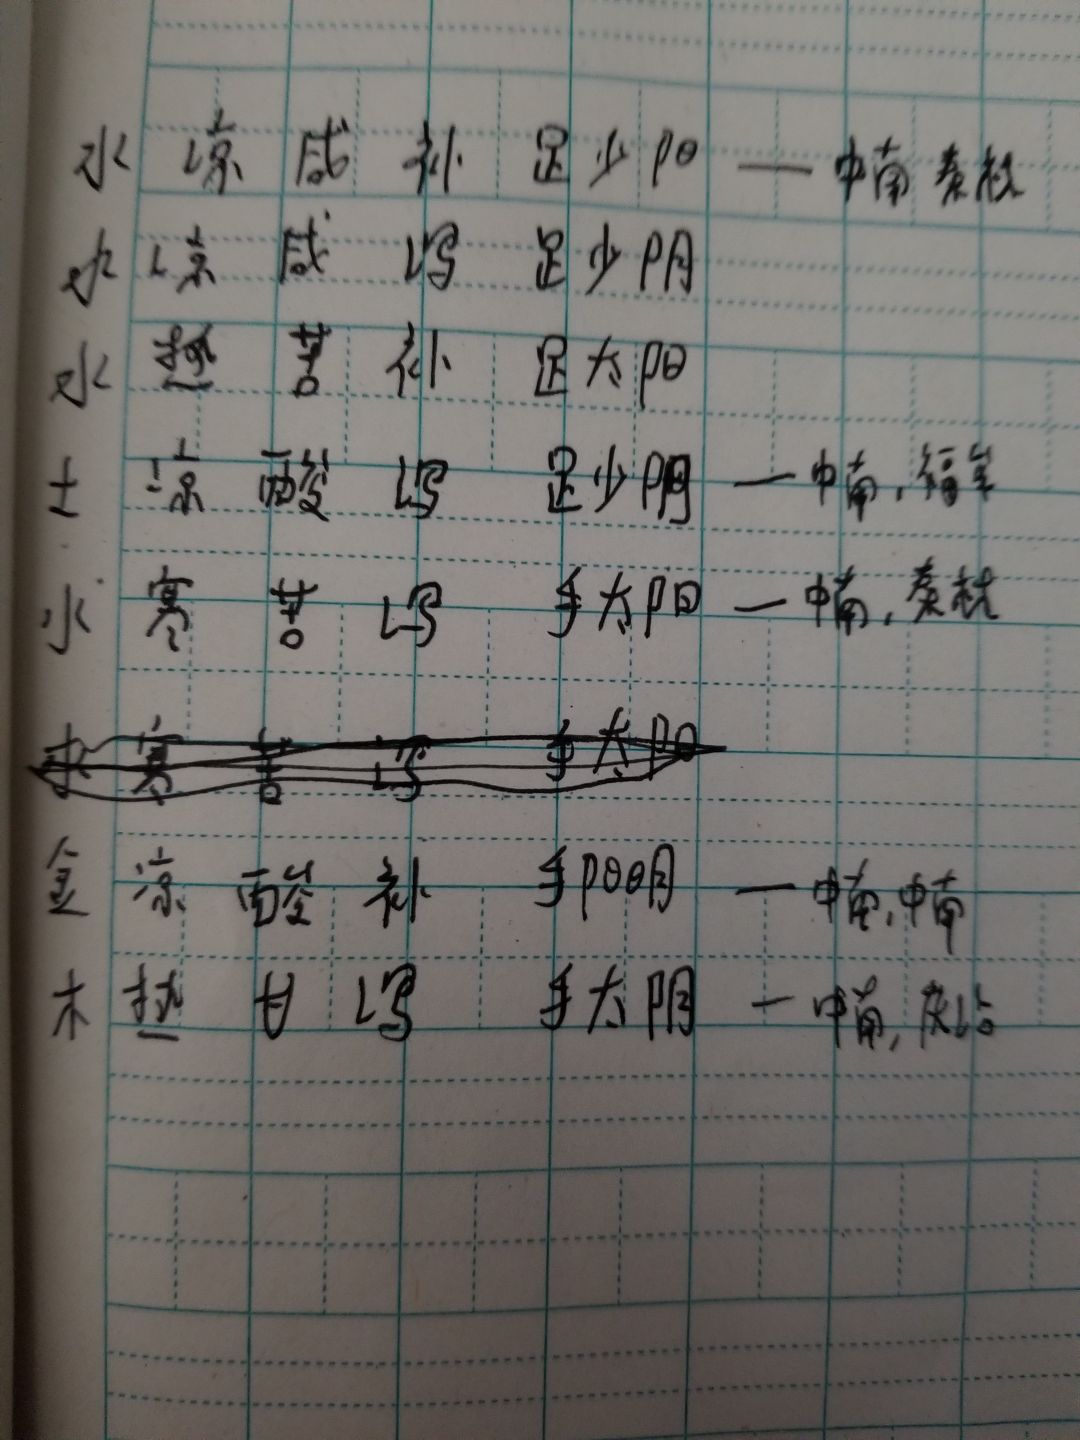 水 凉 咸 补 足少阳 — 中南 秦桂
水 凉 咸 泻 足少阴
水 热 苦 补 足太阳
土 凉 酸 泻 足少阴 — 中南,福羊
水 寒 苦 泻 手太阳 — 中南,秦桂
水 寒 苦 泻 手太阳
金 凉 酸 补 手阳明 — 中南,中南
木 热 甘 泻 手太阴 — 中南,